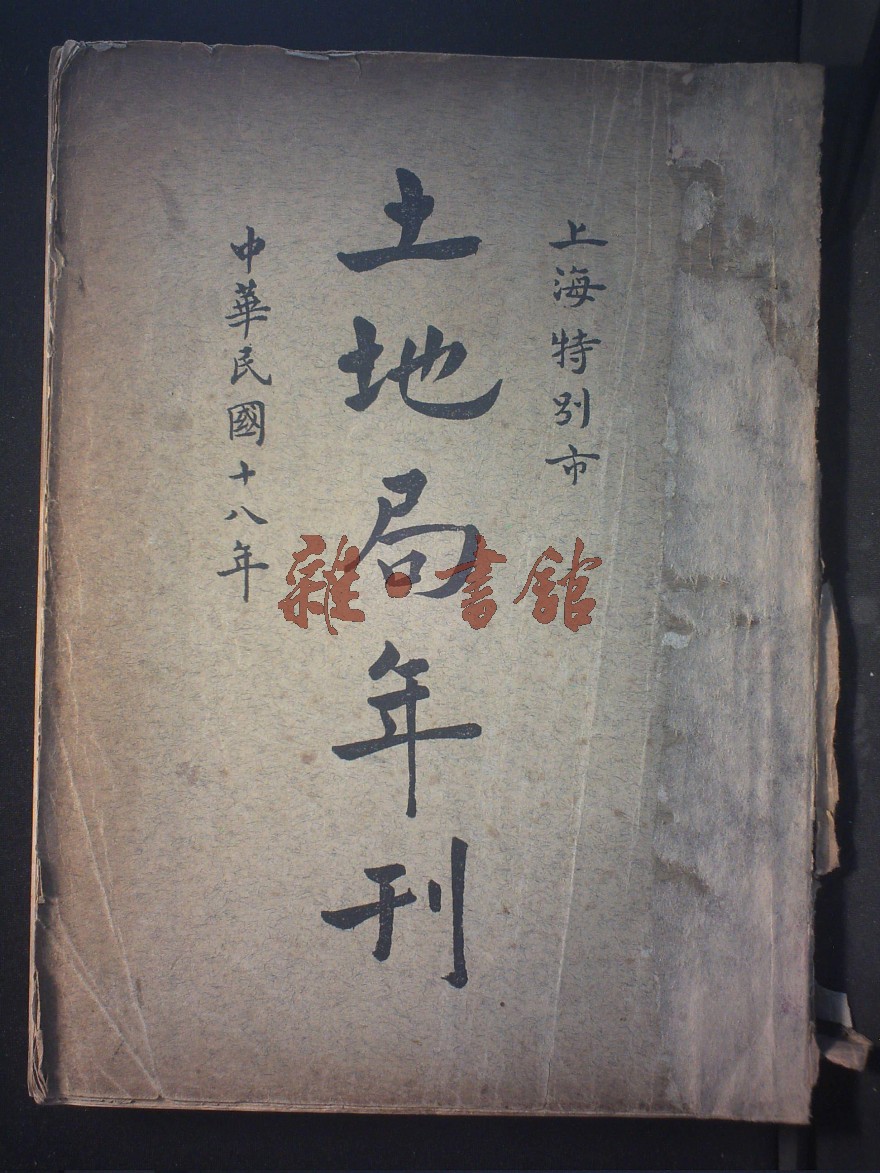 上海特别市
土地局年刊
中華民國十八年
雜·書館